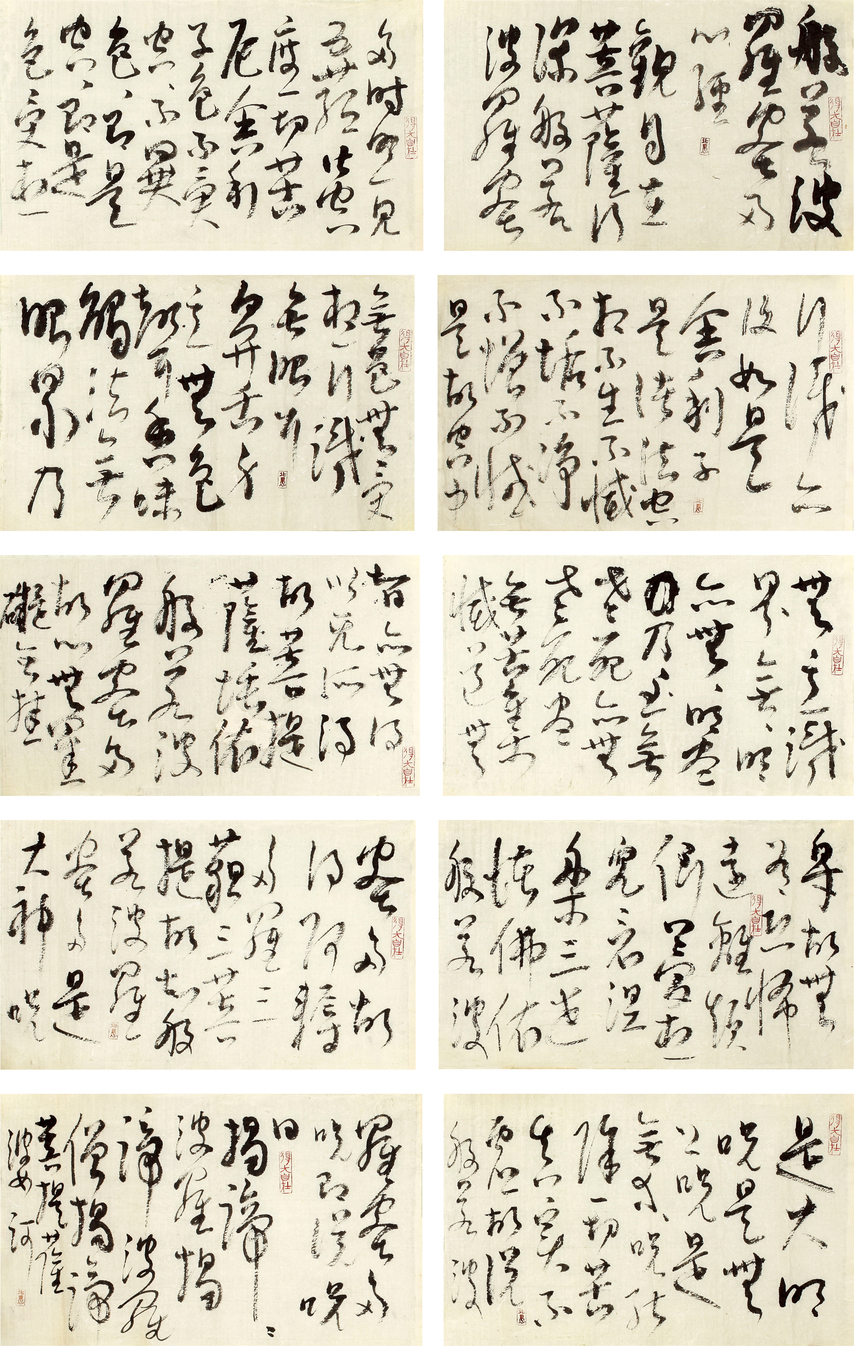 般若波
羅蜜多
心經
觀自在
菩薩行
深般若
波羅蜜
多時照見
五蘊皆空
度一切苦
厄舍利
子色不異
空〻不異
色〻即是
空〻即是
色受想
行識亦
復如是
舍利子
是諸法空
相不生不滅
不垢不淨
不增不減
是故空中
無色無受
想行識
無眼耳
鼻舌身
意無色
聲香味
觸法無
眼界乃
無意識
界無〻明
亦無〻明盡
乃至無
老死亦無
老死盡
無苦集
滅道無
智亦無得
以無所得
故菩提
薩埵依
般若波
羅蜜多
故心無罣
礙無掛
故無
有恐怖
遠離顛
倒夢想
究竟涅
槃三世
諸佛依
般若波
蜜多故
得阿耨
多羅三
藐三菩
提故知般
若波羅
蜜多是
大神咒
是大明
咒是無
上咒是
無等咒能
除一切苦
真實不
虛故說
般若波
羅蜜多
咒即說咒
曰
揭諦〻〻
波羅揭
諦波羅
僧揭諦
菩提薩
婆訶